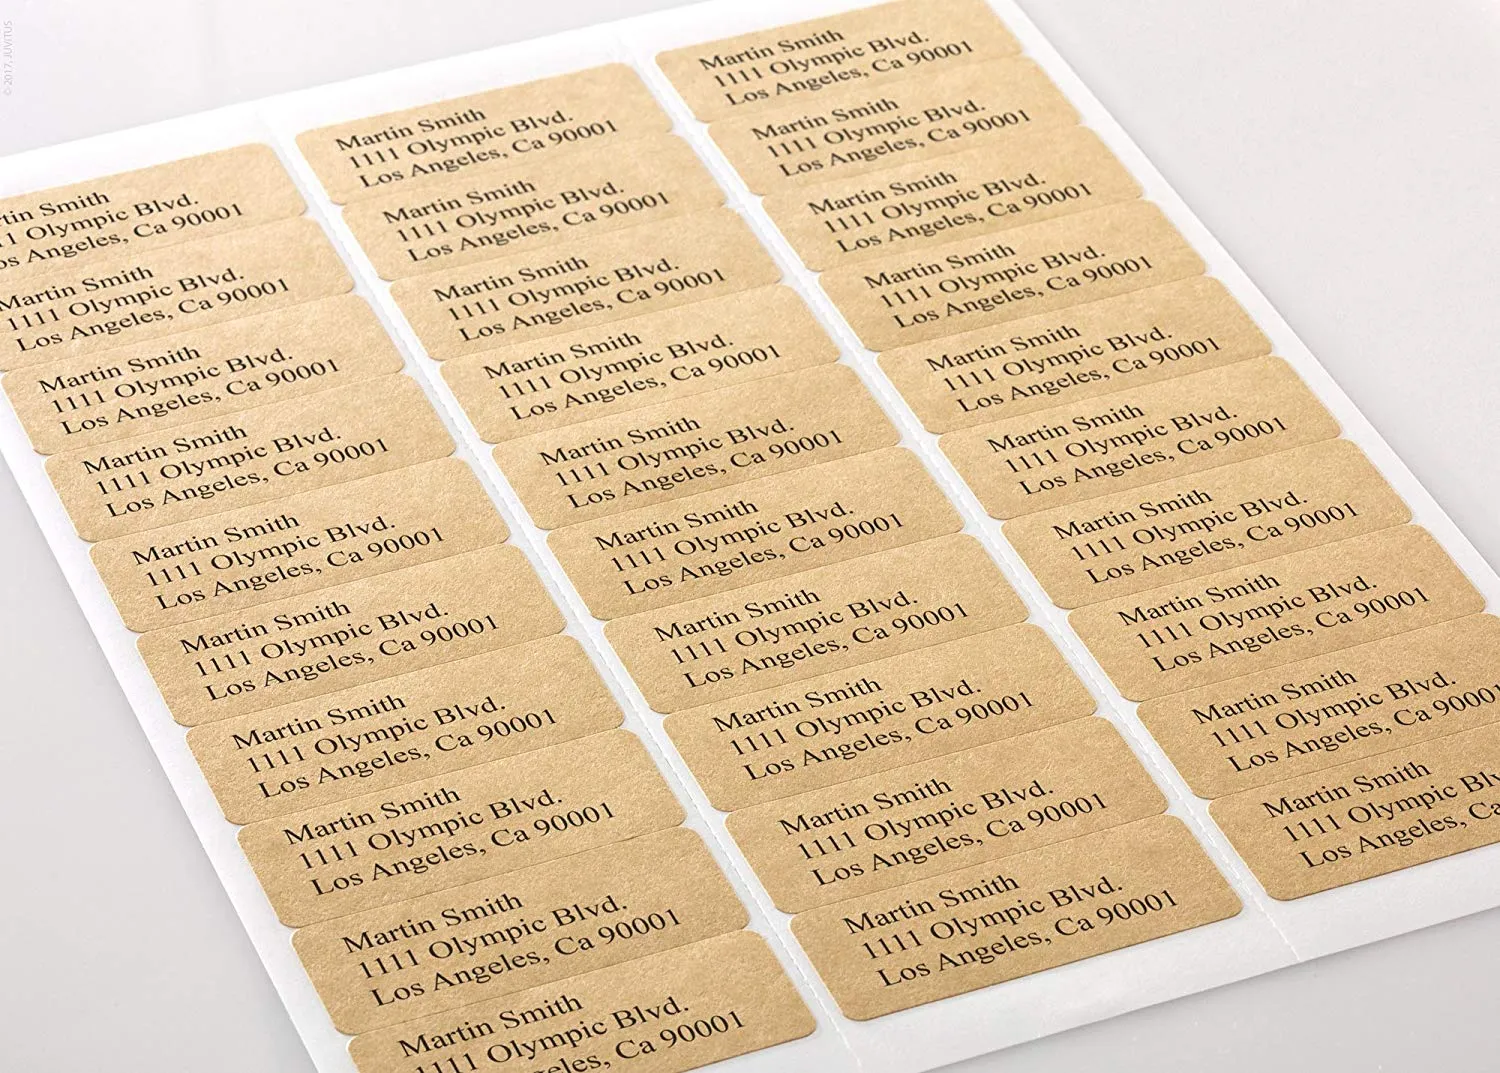 © 2017, JUVITUS
tin Smith
11 Olympic Blvd.
os Angeles, Ca 90001
Martin Smith
1111 Olympic Blvd.
Los Angeles, Ca 90001
Martin Smith
1111 Olympic Blvd.
Los Angeles, Ca 90001
Martin Smith
1111 Olympic Blvd.
Los Angeles, Ca 90001
Martin Smith
1111 Olympic Blvd.
Los Angeles, Ca 90001
Martin Smith
1111 Olympic Blvd.
Los Angeles, Ca 90001
Martin Smith
1111 Olympic Blvd.
Los Angeles, Ca 90001
Martin Smith
1111 Olympic Blvd.
Los Angeles, Ca 90001
Martin Smith
1111 Olympic Blvd.
Los Angeles, Ca 90001
Martin Smith
1111 Olympic Blvd.
eles, Ca 90001
Martin Smith
1111 Olympic Blvd.
Los Angeles, Ca 90001
Martin Smith
1111 Olympic Blvd.
Los Angeles, Ca 90001
Martin Smith
1111 Olympic Blvd.
Los Angeles, Ca 90001
Martin Smith
1111 Olympic Blvd.
Los Angeles, Ca 90001
Martin Smith
1111 Olympic Blvd.
Los Angeles, Ca 90001
Martin Smith
1111 Olympic Blvd.
Los Angeles, Ca 90001
Martin Smith
1111 Olympic Blvd.
Los Angeles, Ca 90001
Martin Smith
1111 Olympic Blvd.
Los Angeles, Ca 90001
Martin Smith
1111 Olympic Blvd.
Los Angeles, Ca 90001
Martin Smith
1111 Olympic Blvd.
Los Angeles, Ca 90001
Martin Smith
1111 Olympic Blvd.
Los Angeles, Ca 90001
Martin Smith
1111 Olympic Blvd.
Los Angeles, Ca 90001
Martin Smith
1111 Olympic Blvd.
Los Angeles, Ca 90001
Martin Smith
1111 Olympic Blvd.
Los Angeles, Ca 90001
Martin Smith
1111 Olympic Blvd.
Los Angeles, Ca 90001
Martin Smith
1111 Olympic Blvd.
Los Angeles, Ca 90001
Martin Smith
1111 Olympic Blvd.
Los Angeles, Ca 90001
Martin Smith
1111 Olympic Blvd.
Los Angeles, Ca 90001
Martin Smith
1111 Olympic Blvd.
Los Angeles, Ca 90001
Martin Smith
1111 Olympic Blv
Los Angeles, Ca